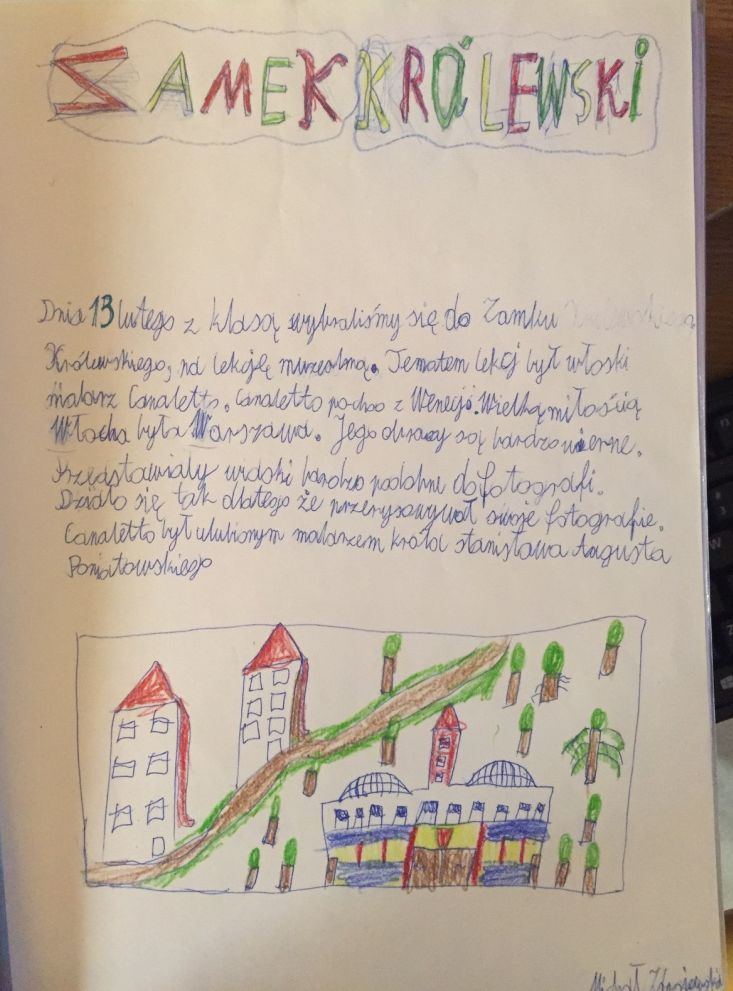 ZAMEK KRÓLEWSKI
Dnia 13 lutego z klasą wybraliśmy się do Zamku
Królewskiego, na lekcję muzealną. Tematem lekcj był włoski
malarz Canaletto. Canaletto pochoo z Wenecji. Wielką miłością
Włocha była Warszawa. Jego obrazy są bardzo wierne.
Przedstawiały widoki bardzo podobne do fotografi.
Działo się tak dlatego że przerysowywał swoje fotografie.
Canaletto był ulubionym malarzem króla stanisława Augusta
Poniatowskiego
Michał